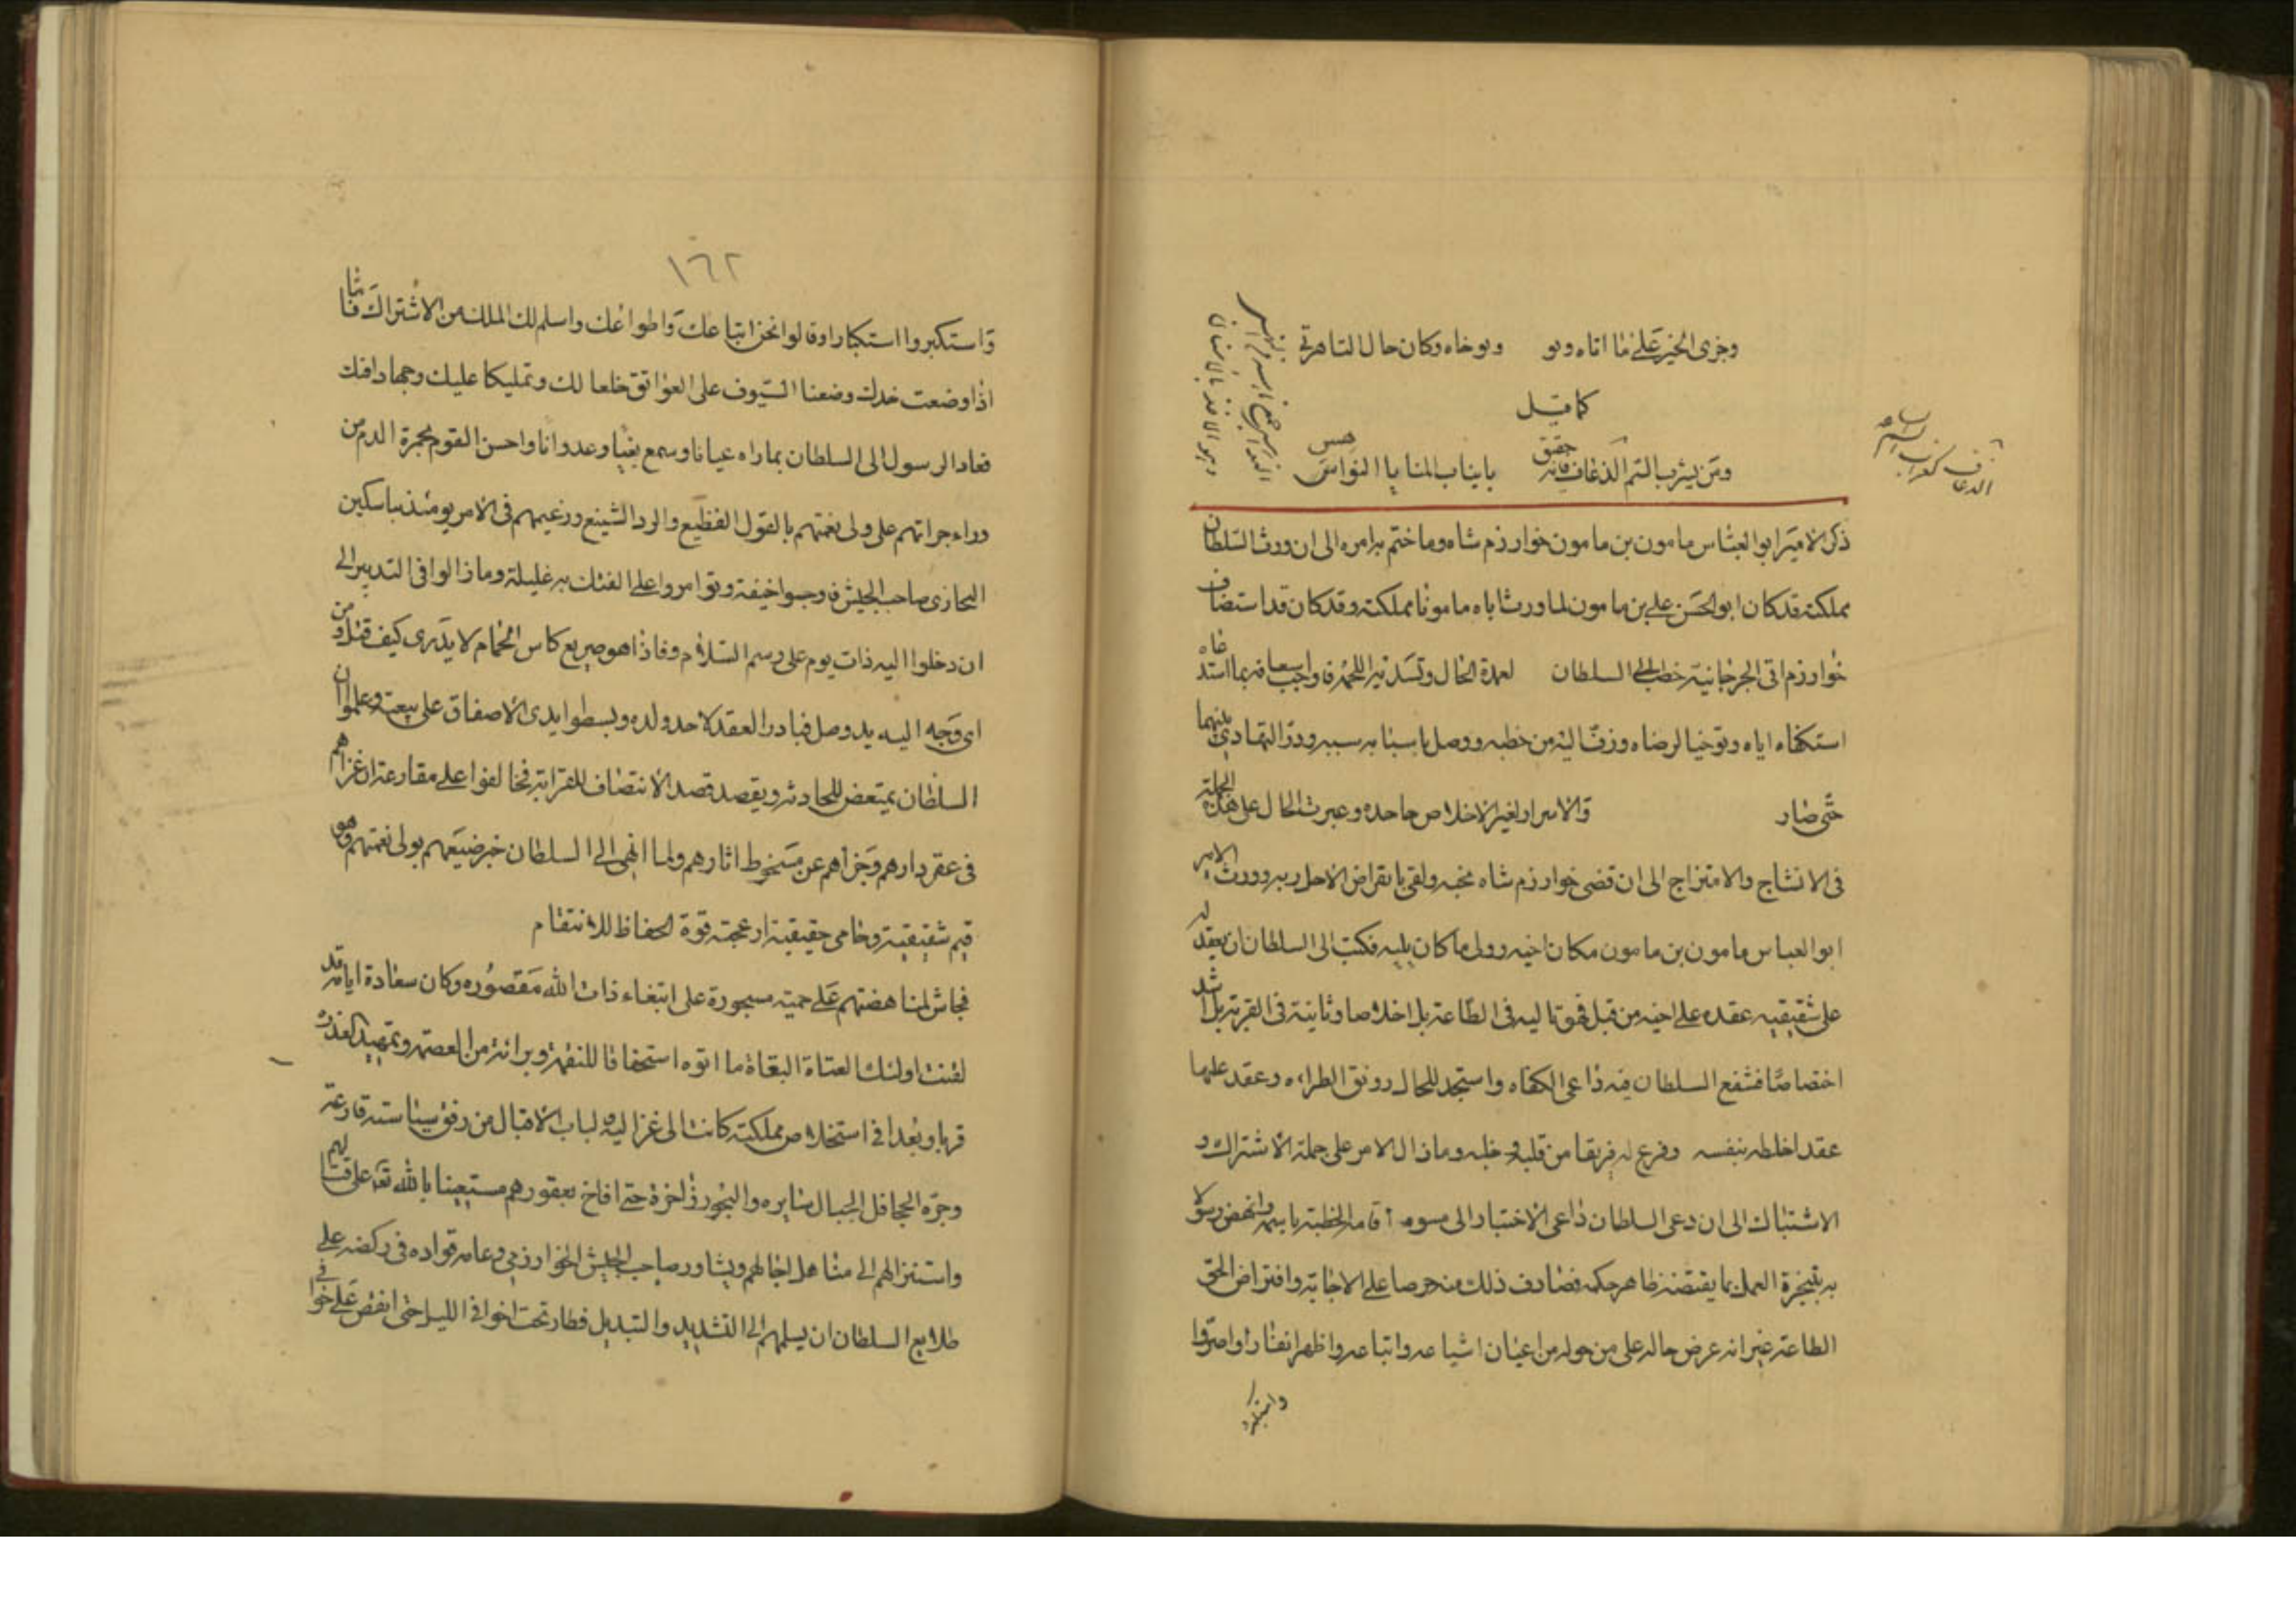 وجزى الخير على ما اتاه وبو وبوخاه وكان حال التاهرتي
كما قيل
ومن يشرب السم الذعاف فانه حقيق بانياب المنايا النواهس
ذكر الامير ابو العباس مامون بن مامون خوارزم شاه وما ختم به امره الى ان ورث السلطان
مملكته قد كان ابو الحسن علي بن مامون لما ورث اباه مامونا مملكته وقد كان قد استضاف
خوارزم اتى الجرجانية خطب الى السلطان لعمدة الحال وتسدية اللحمة فاوجب اسعافه بما استدعاه
استكفاء اياه وتوخيا لرضاه وزف اليه من خطبه ووصل باسبابه سببه ودق التهادي بينهما
حتى صار والاسرار لغير الاخلاص جاحده وعبرت الحال على هذه الجملة
في الانشاج والامتزاج الى ان قضى خوارزم شاه نحبه ولقى بانقراض الاجل ربه وورث الامير
ابو العباس مامون بن مامون مكان اخيه وولى ما كان يليه فكتب الى السلطان ان يعقد له
على شقيقيه عقده على اخيه من قبل فهو تاليه في الطاعة بل اخلاصا وثانية في القربة بل اشد
اختصاصا فشفع السلطان فيه داعي الكفاه واستجد للحال رونق الطراءه وعقد عليها
عقدا خلطه بنفسه وفرع له فريقا من قلبه وخلبه وما زال الامر على جملة الاشتراك و
الاشتباك الى ان دعى السلطان داعي الاختبار الى مسومه اقامه الخطبة باسمه وانهض رسولا
به بتنجزة العمل بما يقتضنه ظاهر حكمه فصادف ذلك منه حرصا على الاجابة وافتراض الحق
الطاعة غير انه عرض حاله على من حوله من اعيان اشياعه واتباعه واظهر انفارا واصروا
واستكبروا
١٦٢
واستكبروا استكبارا وقالوا نحن اتباعك واطواعك واسلم لك الملك من الاشتراك فاما
اذا وضعت خدك وضعنا السيوف على العواتق خلعا لك وتمليكا عليك وجهادا فيك
فعاد الرسول الى السلطان بما راه عيانا وسمع بغيا وعدوانا واحسن القوم بحمرة الدم من
وراء جراتهم على ولى نعمتهم بالقول الفظيع والرد الشينع وزعيمهم في الامر يومئذ نباسكين
البخاري صاحب الجيش فاوجسوا خيفة وتوامروا على الفتك به غليلة وما زالوا في التدبير الى
ان دخلوا اليه ذات يوم على رسم السلام فاذا هو صريع كاس الحمام لا يدرى كيف قتل ومن
اى وجه اليه يد وصل فبادر العقد لاحد ولده وبسطوا ايدى الاصفاق على بيعته وعلموا ان
السلطان يمتعض للحادثه ويقصد قصد الانتصاف للقرابة فتخالفوا على مقارعته ان غزاهم
في عقر دارهم وجزاهم عن مسخوط اثارهم ولما انهى الى السلطان خبر ضيعهم بولى نعمتهم وهو
قيم شقيقية وحامى حقيقية ازعجته قوة الحفاظ للانتقام
فجاش لمناهضتهم على حمية مسجورة على ابتغاء ذات الله مقصوره وكان سعادة ايامه قد
لقنت اولئك العتاة البغاة ما اتوه استحقاقا للنقمة وبراءة من العصمة وتمهيد العذره
قربا وبعدا في استخلاص مملكته كانت الى غزاليه لباب الاقبال من رفق سياسته قارعة
وجره الجحافل الجبال سايره والبحور زاخرة حتى اناخ بعقورهم مستعينا بالله تعه على قتالهم
واستنزالهم الى مناهل اجالهم وتشاور صاحب الجيش الخوارزمي وعامه قواده في ركضه على
طلايع السلطان ان يسلمهم الى التشديد والتبديل فطار تحت خوافي الليل حتى انقض على في خوا